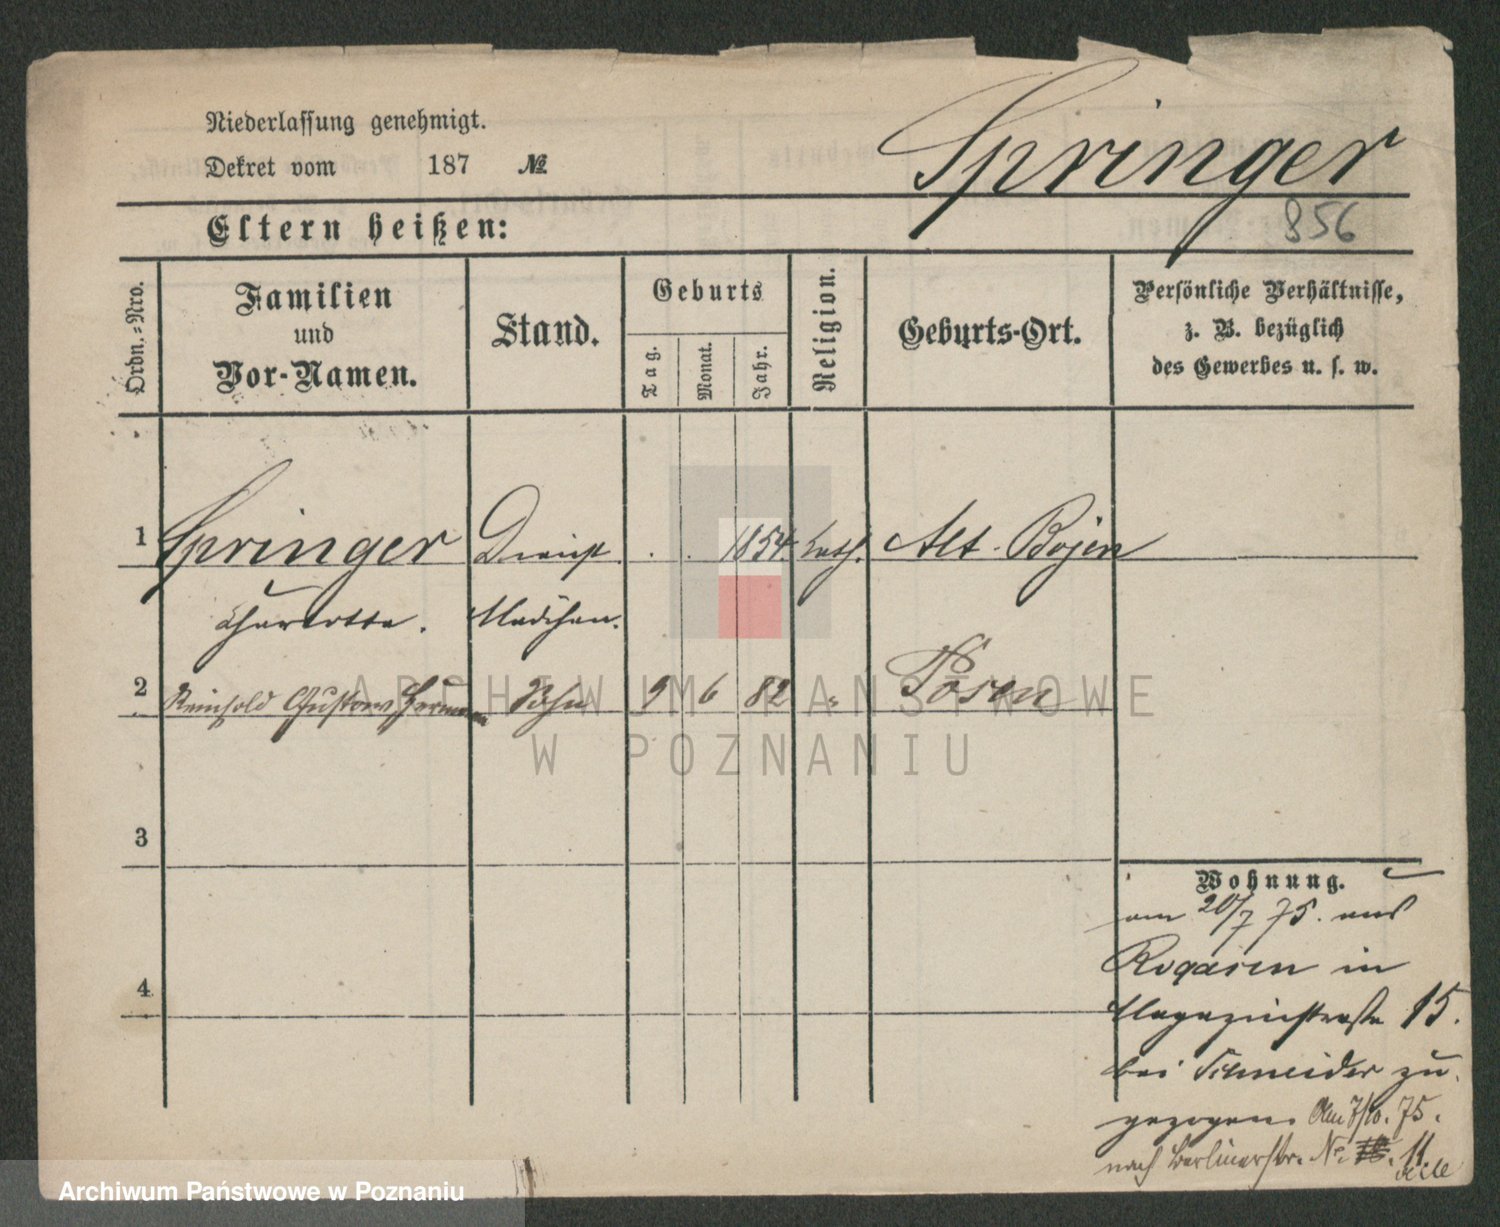 Niederlassung genehmigt.
Dekret vom 187 №
Springer
856
Eltern heißen:
Ordn.-Nro.
Familien
und
Vor-Namen.
Stand.
Geburts
Tag.
Monat.
Jahr.
Religion.
Geburts-Ort.
Persönliche Verhältnisse,
z. B. bezüglich
des Gewerbes u. s. w.
1 Springer Dienst . . 1854 kath. Alt Bojen
Charlotte. Mädchen.
2 Reinhold Gustav Hermann Sohn 9 6 82 " Posen
ARCHIWUM PAŃSTWOWE
W POZNANIU
3
Wohnung.
am 20/7 75. aus
Rogasen in
4
Magazinstraße 15.
bei Schneider zu
gezogen. Am 7/10. 75.
nach Berlinerstr. No. 11
Archiwum Państwowe w Poznaniu